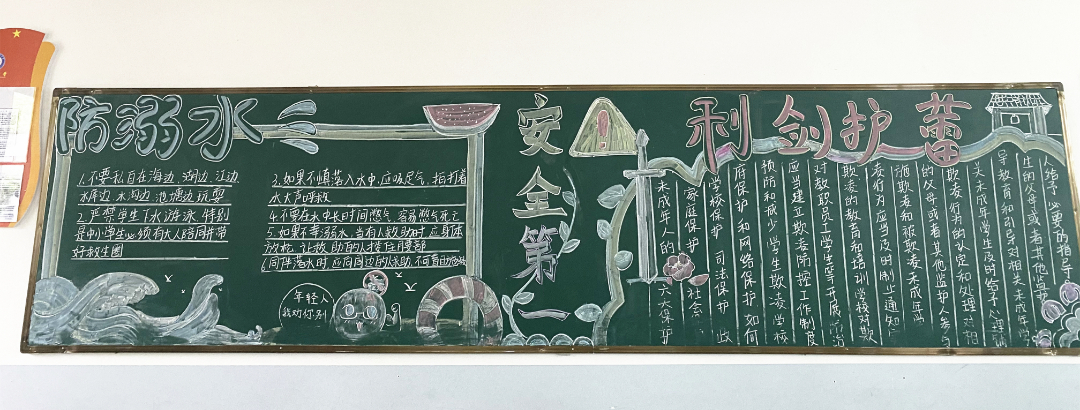 防溺水
1.不要私自在海边 湖边 江边
水库边 水沟边 池塘边玩耍
2.严禁学生下水游泳 特别
是中小学生必须有大人陪同并带
好救生圈
3.如果不慎落入水中,应吸足气,拍打着
水大声呼救
4.不要在水中长时间憋气 容易憋气死亡
5.如果不幸溺水,当有人救助时 应身体
放松,让救助的人托住腰部
6.同伴落水时 应向周边的人求助 不可盲目
年轻人
我劝你别
安全第一
利剑护蕾
未成年人的六大保护
家庭保护 社会
学校保护 司法保护 政
府保护和网络保护 如何
预防和减少学生欺凌 学校
应当建立欺凌防控工作制度
对教职员工学生等开展防治
欺凌的教育和培训 学校对欺
凌行为应当及时制止 通知
被欺凌和被欺凌未成年学
的父母或者其他监护人参与
欺凌行为的认定和处理 对相
关未成年学生及时给予心理辅
导教育和引导 对相关未成年学
生的父母或者其他监护
人给予必要的指导